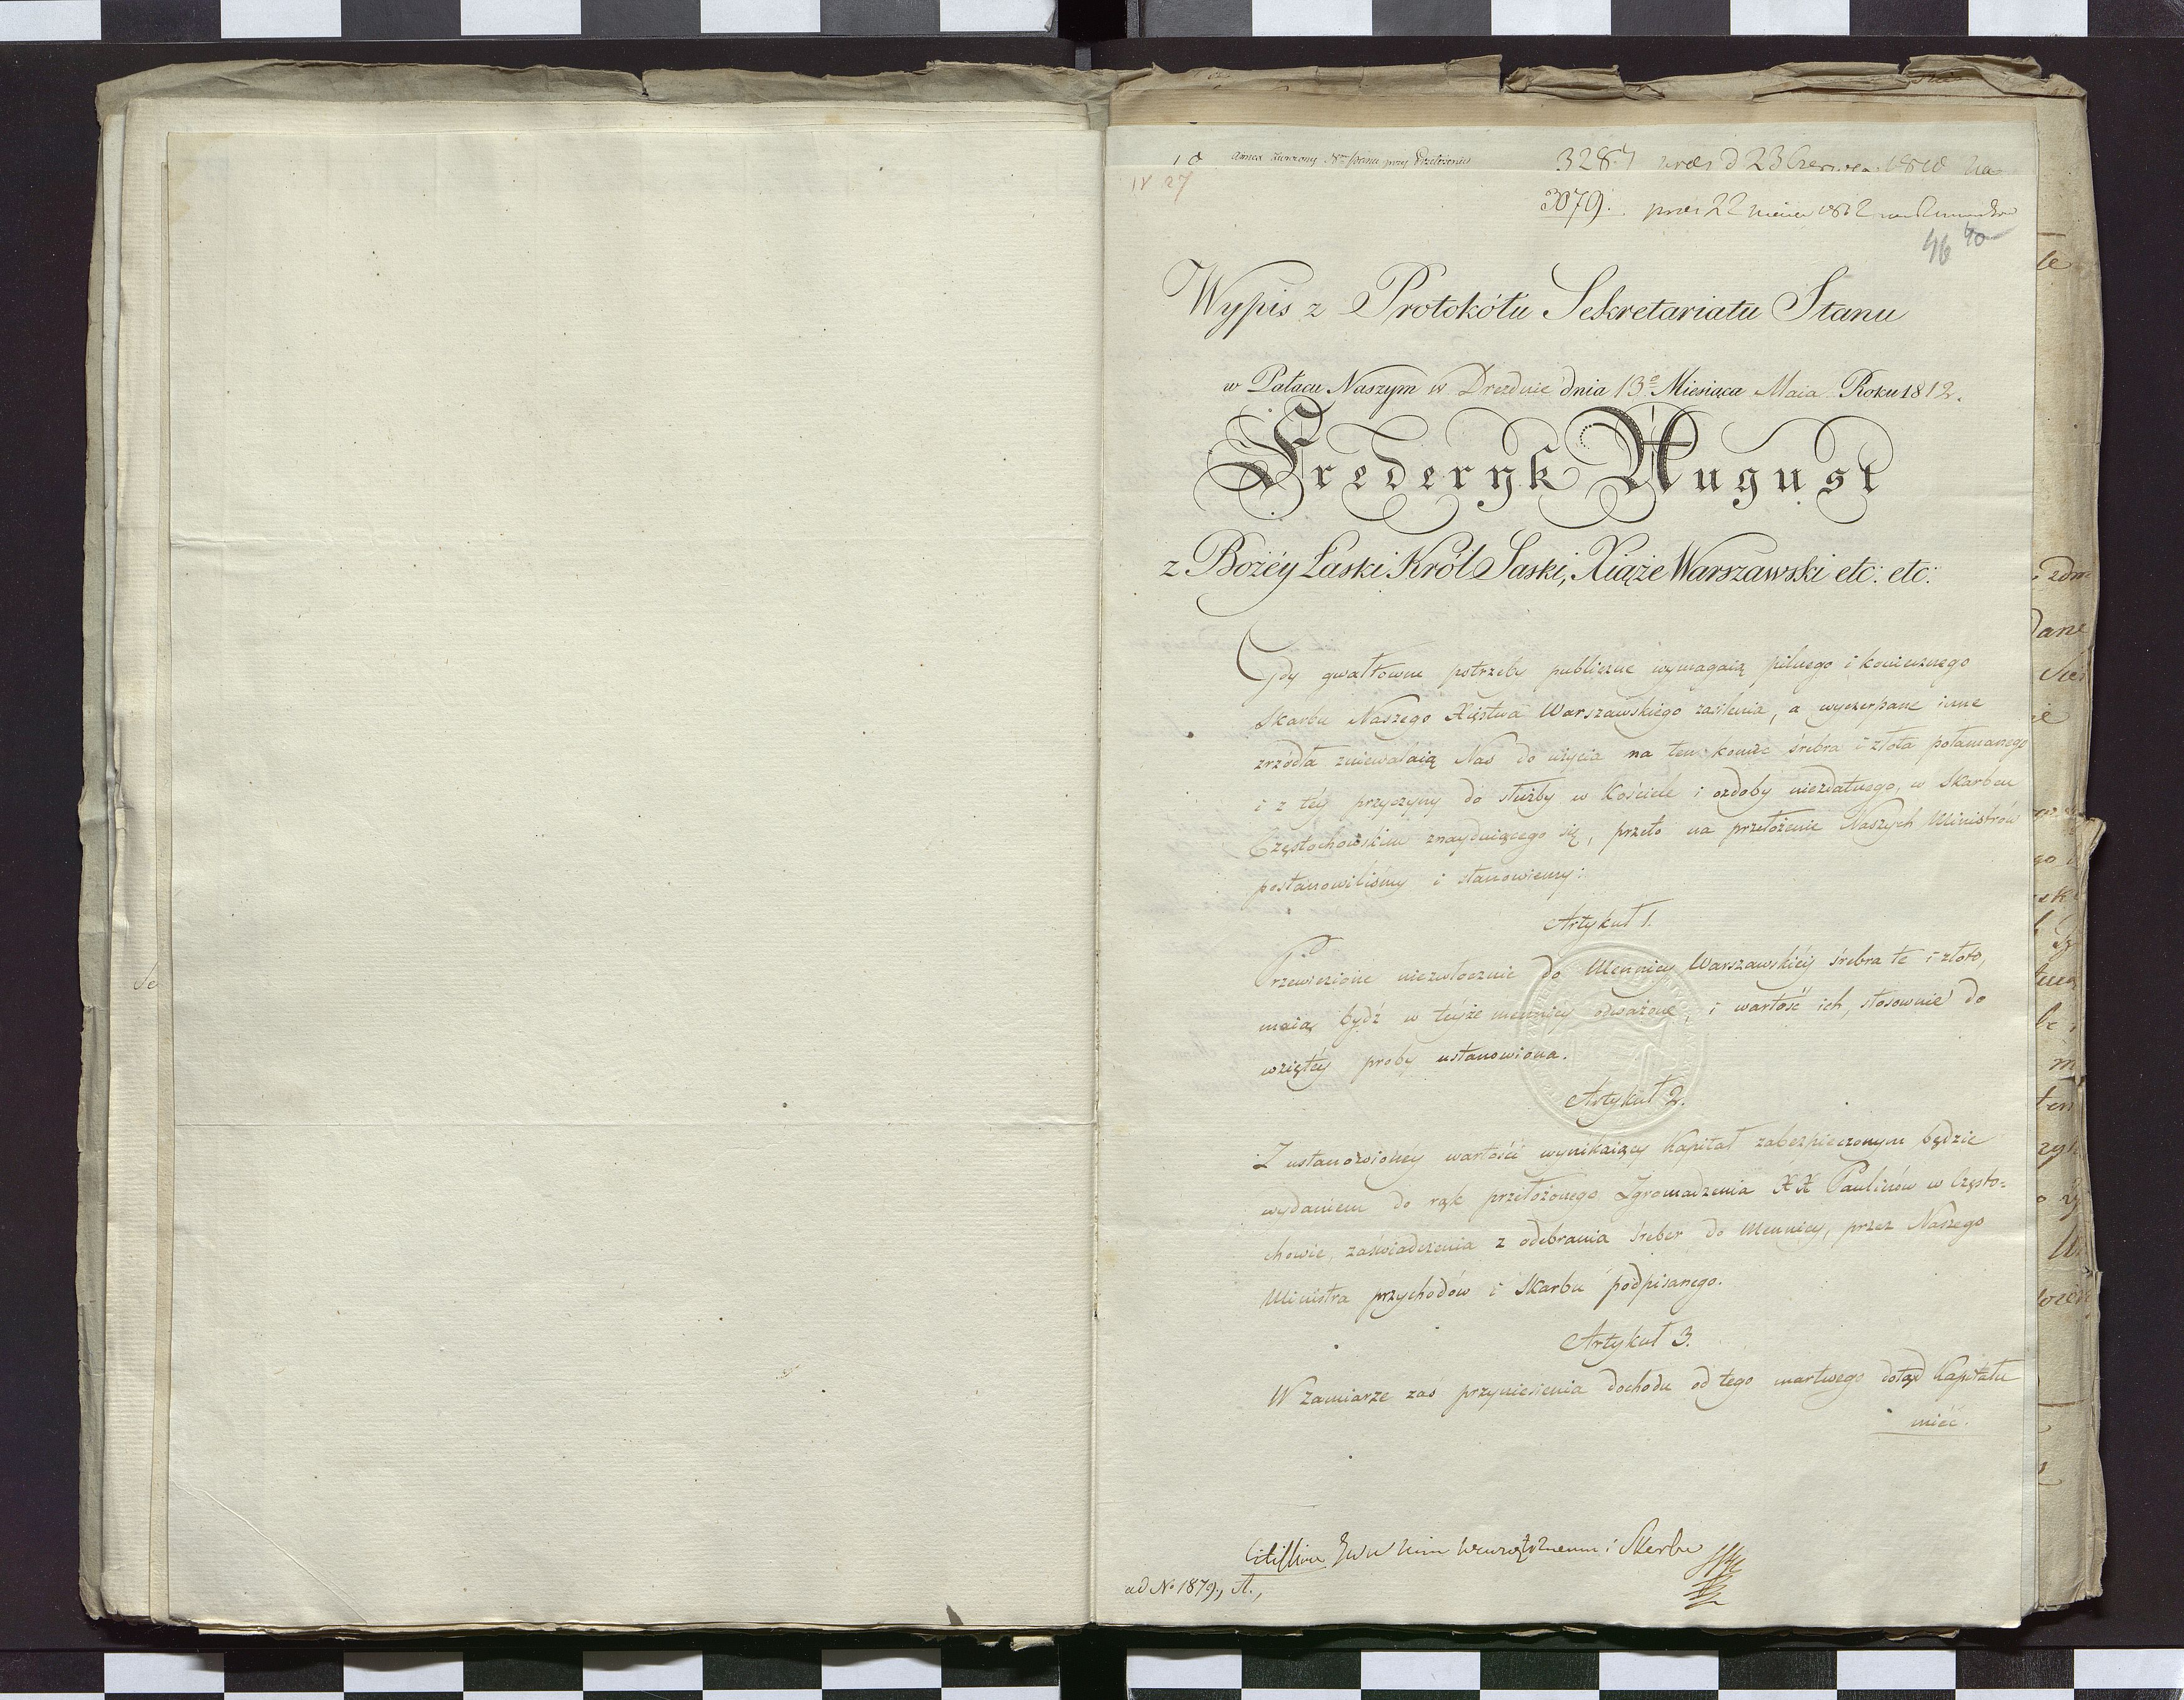 3287
3079.
46 40
Wypis z Protokółu Sekretariatu Stanu
w Pałacu Naszym w Dreźnie dnia 13º Miesiąca Maia Roku 1812.
Frederyk August
z Bożéy Łaski Król Saski, Xiąże Warszawski etc: etc:
Gdy gwałtowne potrzeby publiczne wymagaią pilnego i koniecznego
Skarbu Naszego Xięstwa Warszawskiego zasilenia, a wyczerpane inne
zrzódła zniewalaią Nas do użycia na ten koniec śrebra i złota połamanego
i z téy przyczyny do służby w Kościele i ozdoby niezdatnego, w Skarbcu
Częstochowskim znayduiącego się, przeto na przełożenie Naszych Ministrów
postanowiliśmy i stanowiemy:
Artykuł 1.
Przewiezione niezwłocznie do Mennicy Warszawskiéy śrebra te i złoto,
maią bydź w téyże mennicy odważone, i wartość ich, stosownie do
wziętéy proby ustanowiona.
Artykuł 2.
Z ustanowionéy wartości wynikaiący Kapitał zabezpieczonym będzie
wydaniem do rąk przełożonego Zgromadzenia XX Paulinów w Często=
chowie, zaświadczenia z odebrania śreber do Mennicy, przez Naszego
Ministra przychodów i Skarbu podpisanego.
Artykuł 3.
W zamiarze zaś przyniesienia dochodu od tego martwego dotąd Kapitału
mieć.
i Skarbu
ad Nº 1879., A.,